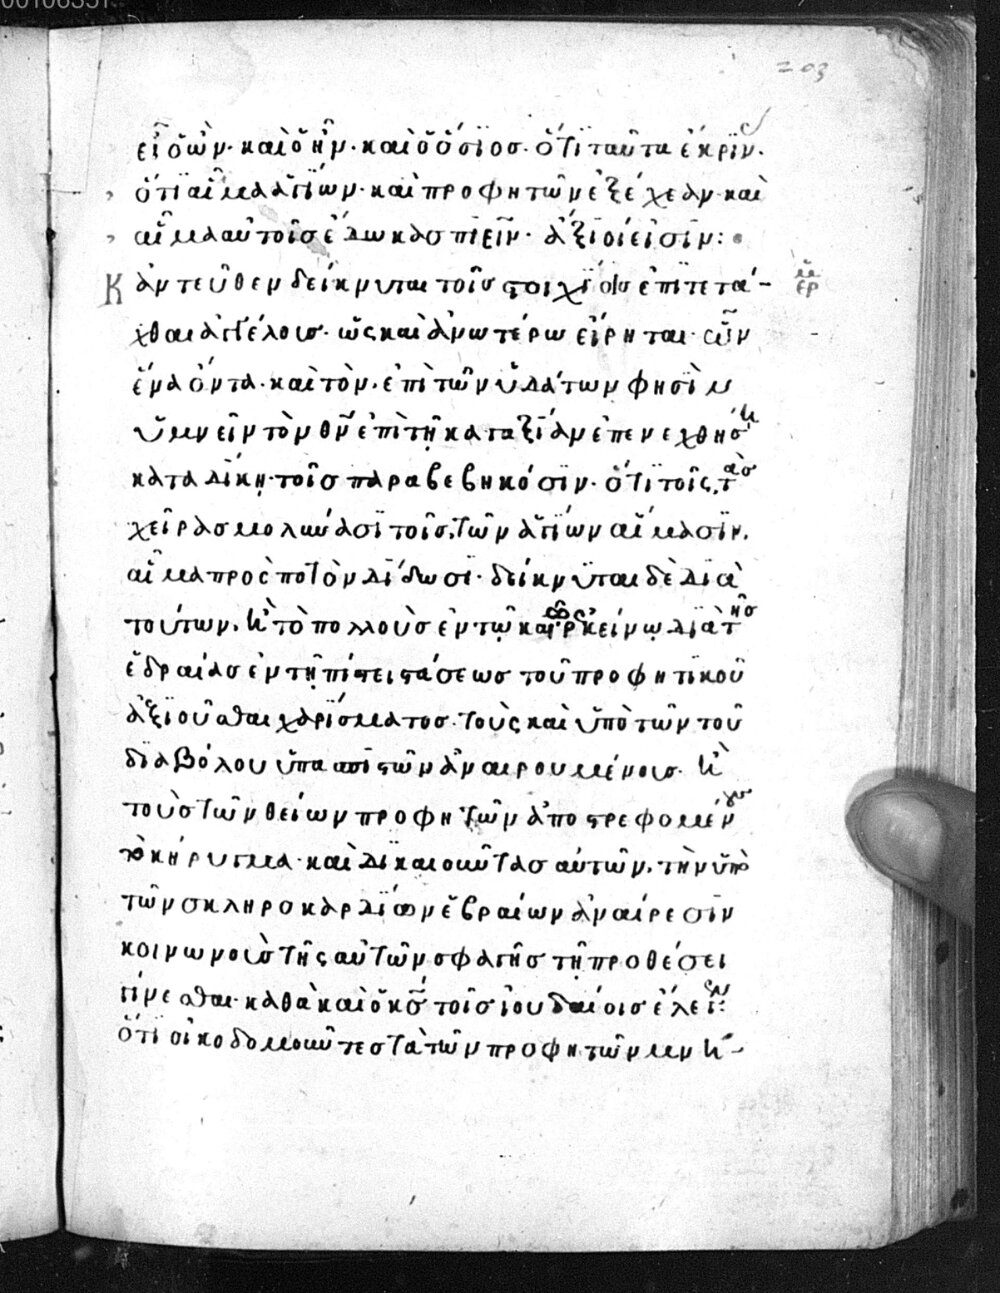 203
εἶ ὁ ὢν· καὶ ὁ ἦν· καὶ ὁ ὅσιος· ὅτι ταῦτα ἔκριν·
ὅτι αἷμα ἁγίων· καὶ προφητῶν ἐξέχεαν· καὶ
αἷμα αὐτοῖς ἔδωκας πιεῖν· ἄξιοί εἰσιν:
Κἀντεῦθεν δείκνυται τοῖς στοιχείοις ἐπιτετά-
χθαι ἀγγέλοις· ὡς καὶ ἀνωτέρω εἴρηται· ὧν
ἕνα ὄντα· καὶ τὸν· ἐπὶ τῶν ὑδάτων φησὶν
ὑμνεῖν τὸν θν ἐπὶ τῇ καταξίαν ἐπενεχθήσ
καταδίκῃ· τοῖς παραβεβηκόσιν· ὅτι τοῖς τὰς
χεῖρας μολύνασι τοῖς τῶν ἁγίων αἵμασιν·
αἷμα πρὸς ποτὸν δίδωσι· δείκνυται δὲ διὰ
τούτων· κ τὸ πολλοὺς ἐν τῷ καιρῷ κείνῳ διὰ τῆς
ἑδραίας ἐν τῇ πίστει στάσεως τοῦ προφητικοῦ
ἀξιοῦσθαι χαρίσματος· τοὺς καὶ ὑπὸ τῶν τοῦ
διαβόλου ὑπασπιστῶν ἀναιρουμένους· κ
τοὺς τῶν θείων προφητῶν ἀποστρεφομένους
τὸ κήρυγμα· καὶ δικαιοῦντας αὐτῶν· τὴν ὑπὸ
τῶν σκληροκαρδίων ἑβραίων ἀναίρεσιν
κοινωνοὺς τῆς αὐτῶν σφαγῆς τῇ προθέσει
γίνεσθαι· καθὰ καὶ ὁ κς τοῖς ἰουδαίοις ἔλεγεν:
ὅτι οἰκοδομοῦντες τὰ τῶν προφητῶν μν κ-